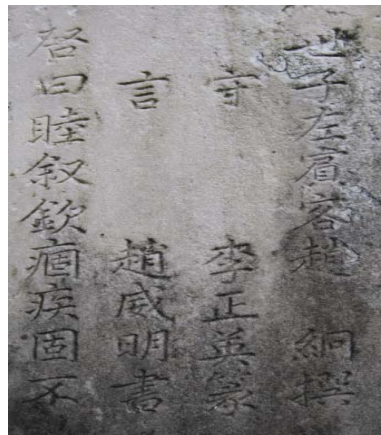 世子左賓客趙 絅撰
守 李正英篆
言 趙威明書
啓曰睦叙欽痼疾固不